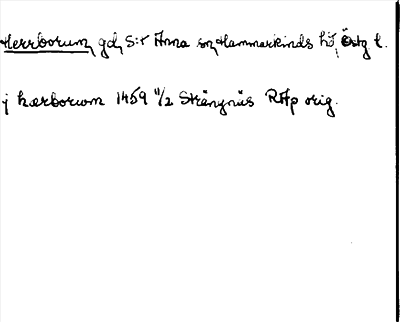 Herrborum, gd, S:t Anna sn, Hammarkinds hd, Östg l.
j hærborwm 1459 11/2 Strängnäs RAp orig.